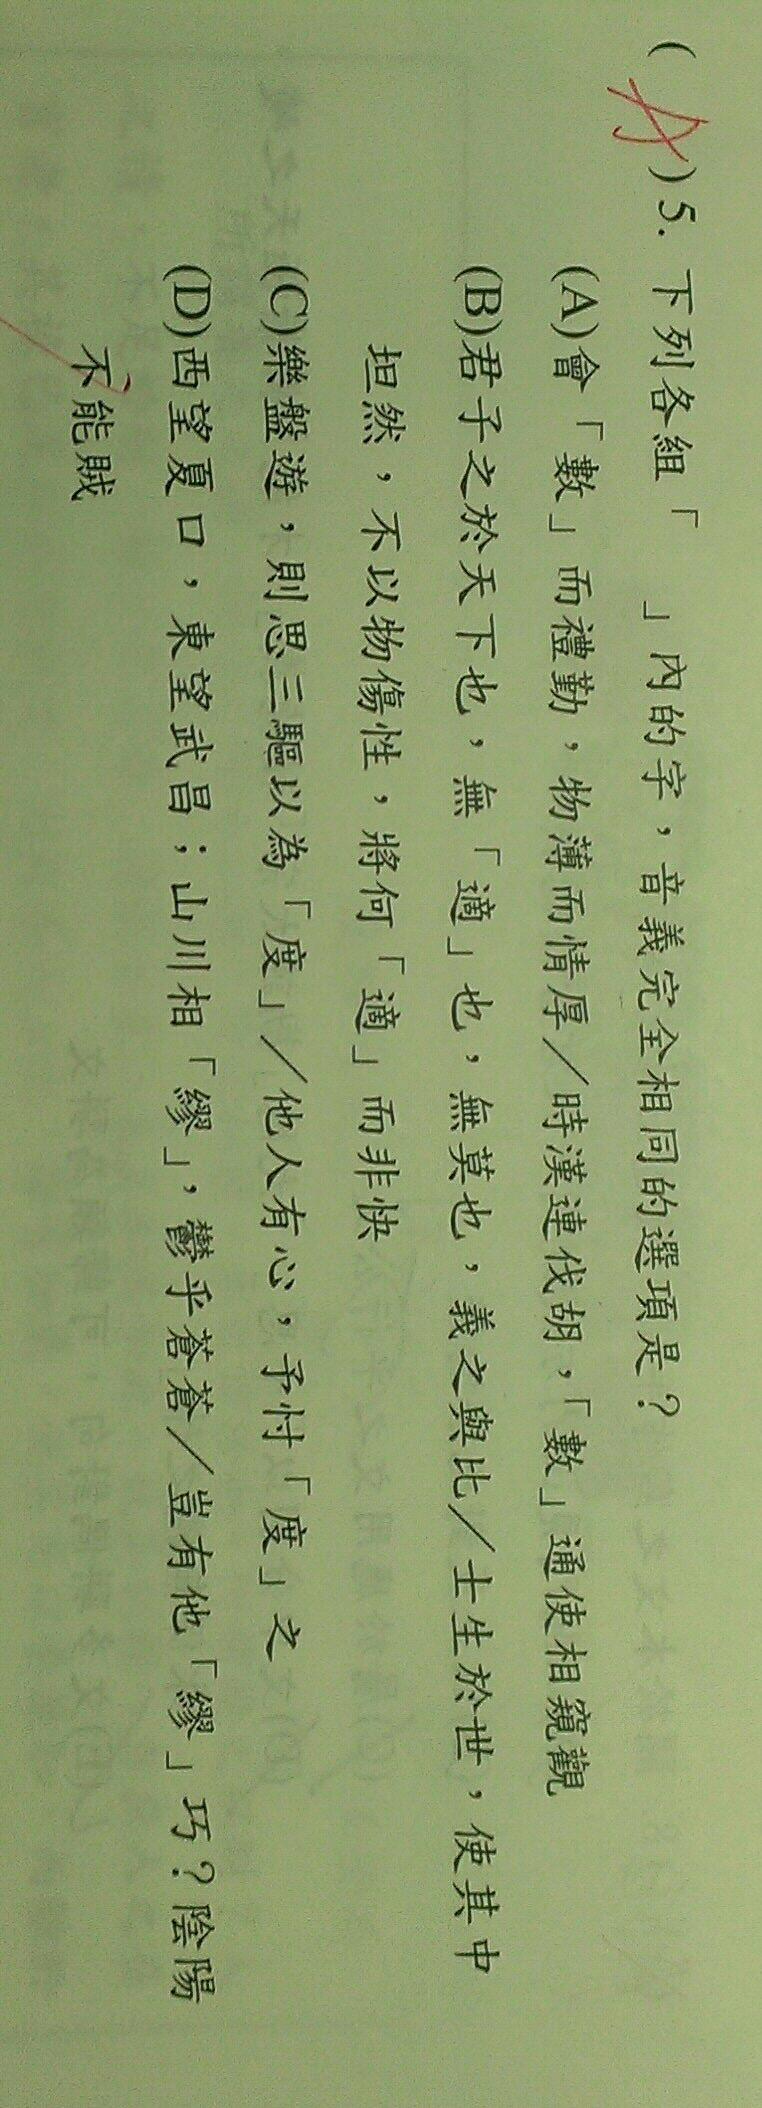 (A)5. 下列各組「　」內的字，音義完全相同的選項是？
(A)會「數」而禮勤，物薄而情厚／時漢連伐胡，「數」通使相窺觀
(B)君子之於天下也，無「適」也，無莫也，義之與比／士生於世，使其中
坦然，不以物傷性，將何「適」而非快
(C)樂盤遊，則思三驅以為「度」／他人有心，予忖「度」之
(D)西望夏口，東望武昌；山川相「繆」，鬱乎蒼蒼／豈有他「繆」巧？陰陽
不能賊